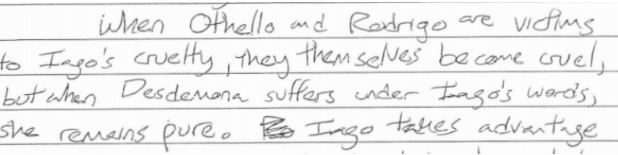 When Othello and Rodrigo are victims
to Iago's cruelty, they themselves become cruel,
but when Desdemona suffers under Iago's words,
she remains pure. Iago takes advantage